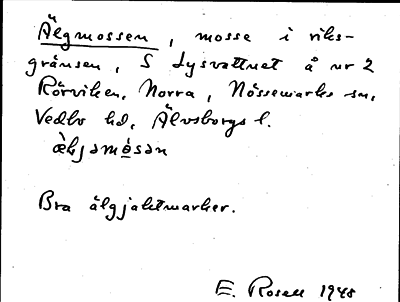 Älgmossen, mosse i riks-
gränsen, S Lysvattnet å nr 2
Rörviken, Norra, Nössemarks sn,
Vedbo hd, Älvsborgs l.
æ̀ljəmósən
Bra älgjaktmarker.
E. Rosell 1948